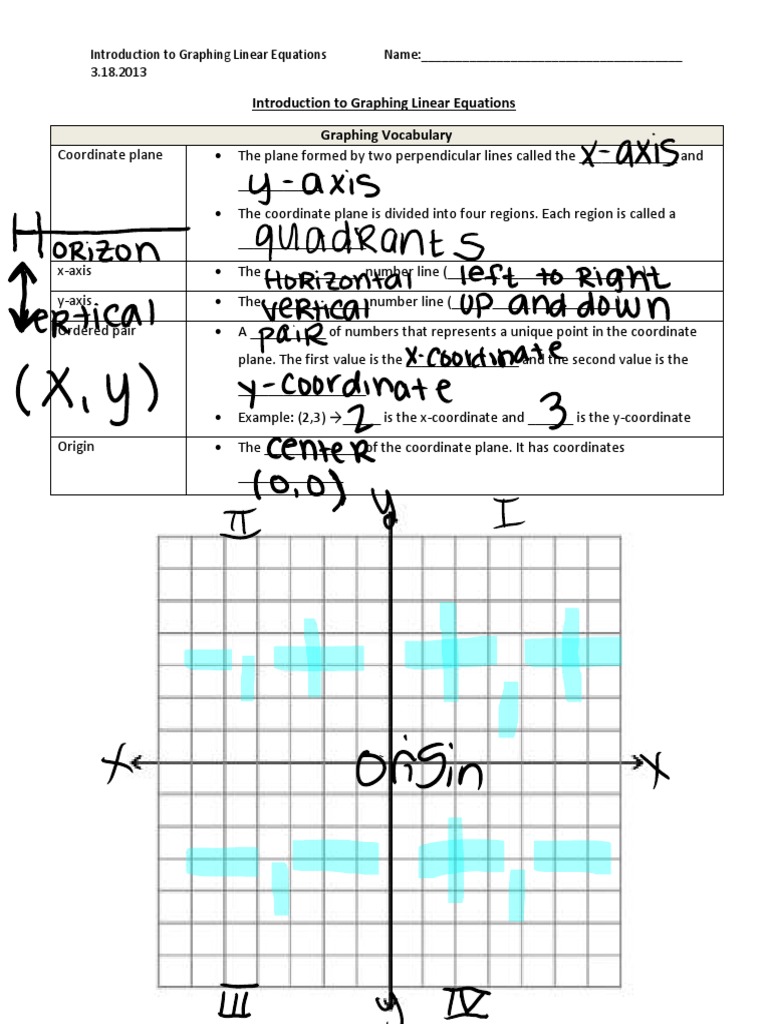 Introduction to Graphing Linear Equations Name:____________________________________
3.18.2013
Introduction to Graphing Linear Equations
Graphing Vocabulary
Coordinate plane
• The plane formed by two perpendicular lines called the x-axis and
y-axis
• The coordinate plane is divided into four regions. Each region is called a
quadrants
Horizon
x-axis
• The Horizontal number line ( left to Right
y-axis
• The vertical number line ( up and down
vertical
Ordered pair
• A pair of numbers that represents a unique point in the coordinate
plane. The first value is the x-coordinate and the second value is the
y-coordinate
(x, y)
• Example: (2,3) → 2 is the x-coordinate and 3 is the y-coordinate
Origin
• The center of the coordinate plane. It has coordinates
(0,0)
y
II I
- , + + , +
x origin x
- , - + , -
III y IV